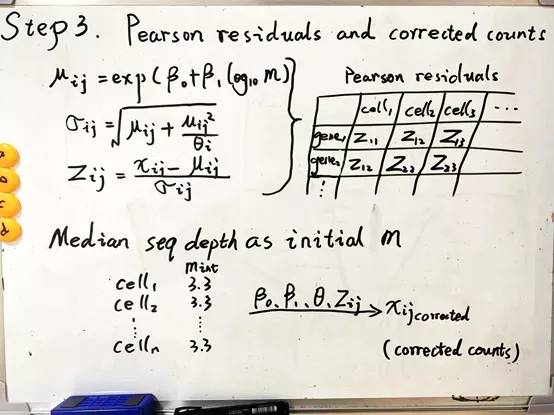 Step 3. Pearson residuals and corrected counts
μij = exp(β0+β1 log10 m)
σij = √(μij + μij²/θi)
Zij = (xij - μij)/σij
Pearson residuals
cell1 cell2 cell3 ...
gene1 Z11 Z12 Z13
gene2 Z12 Z22 Z23
⋮
Median seq depth as initial m
minit
cell1 3.3
cell2 3.3
⋮ ⋮
celln 3.3
β0, β1, θ, Zij → xij corrected
(corrected counts)